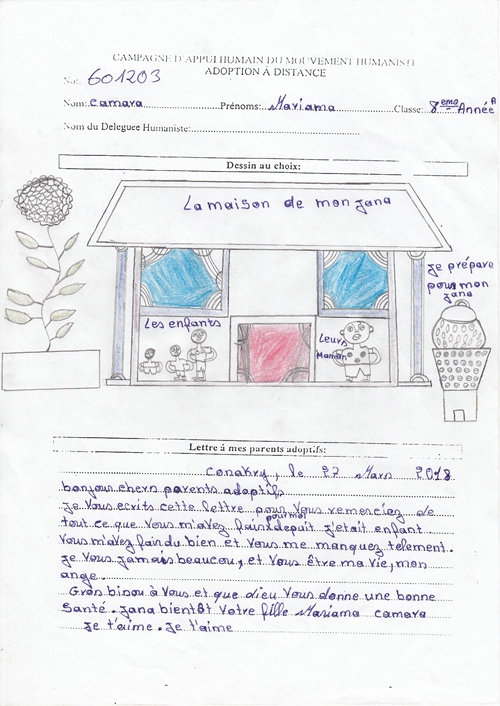 CAMPAGNE D'APPUI HUMAIN DU MOUVEMENT HUMANISTE
ADOPTION À DISTANCE
No: 601203
Nom: Camara Prénoms: Mariama Classe: 8ème Année A
Nom du Deleguee Humaniste:
Dessin au choix:
La maison de mon jana
Je prépare
pour mon
jana
Les enfants
Leurs
Maman
Lettre à mes parents adoptifs:
Conakry, le 27 Mars 2018
bonjour chers parents adoptifs
Je Vous ecrits cette lettre pour Vous remerciez de
tout ce que Vous m'avez faire pour moi depuit j'etait enfant.
Vous m'avez fair du bien et Vous me manquez telement.
Je Vous jamais beaucou, et Vous être ma Vie, mon
ange.
Gros bisou à Vous et que dieu Vous donne une bonne
Santé. Jana bientôt Votre fille Mariama camara
Je t'aime. Je t'aime